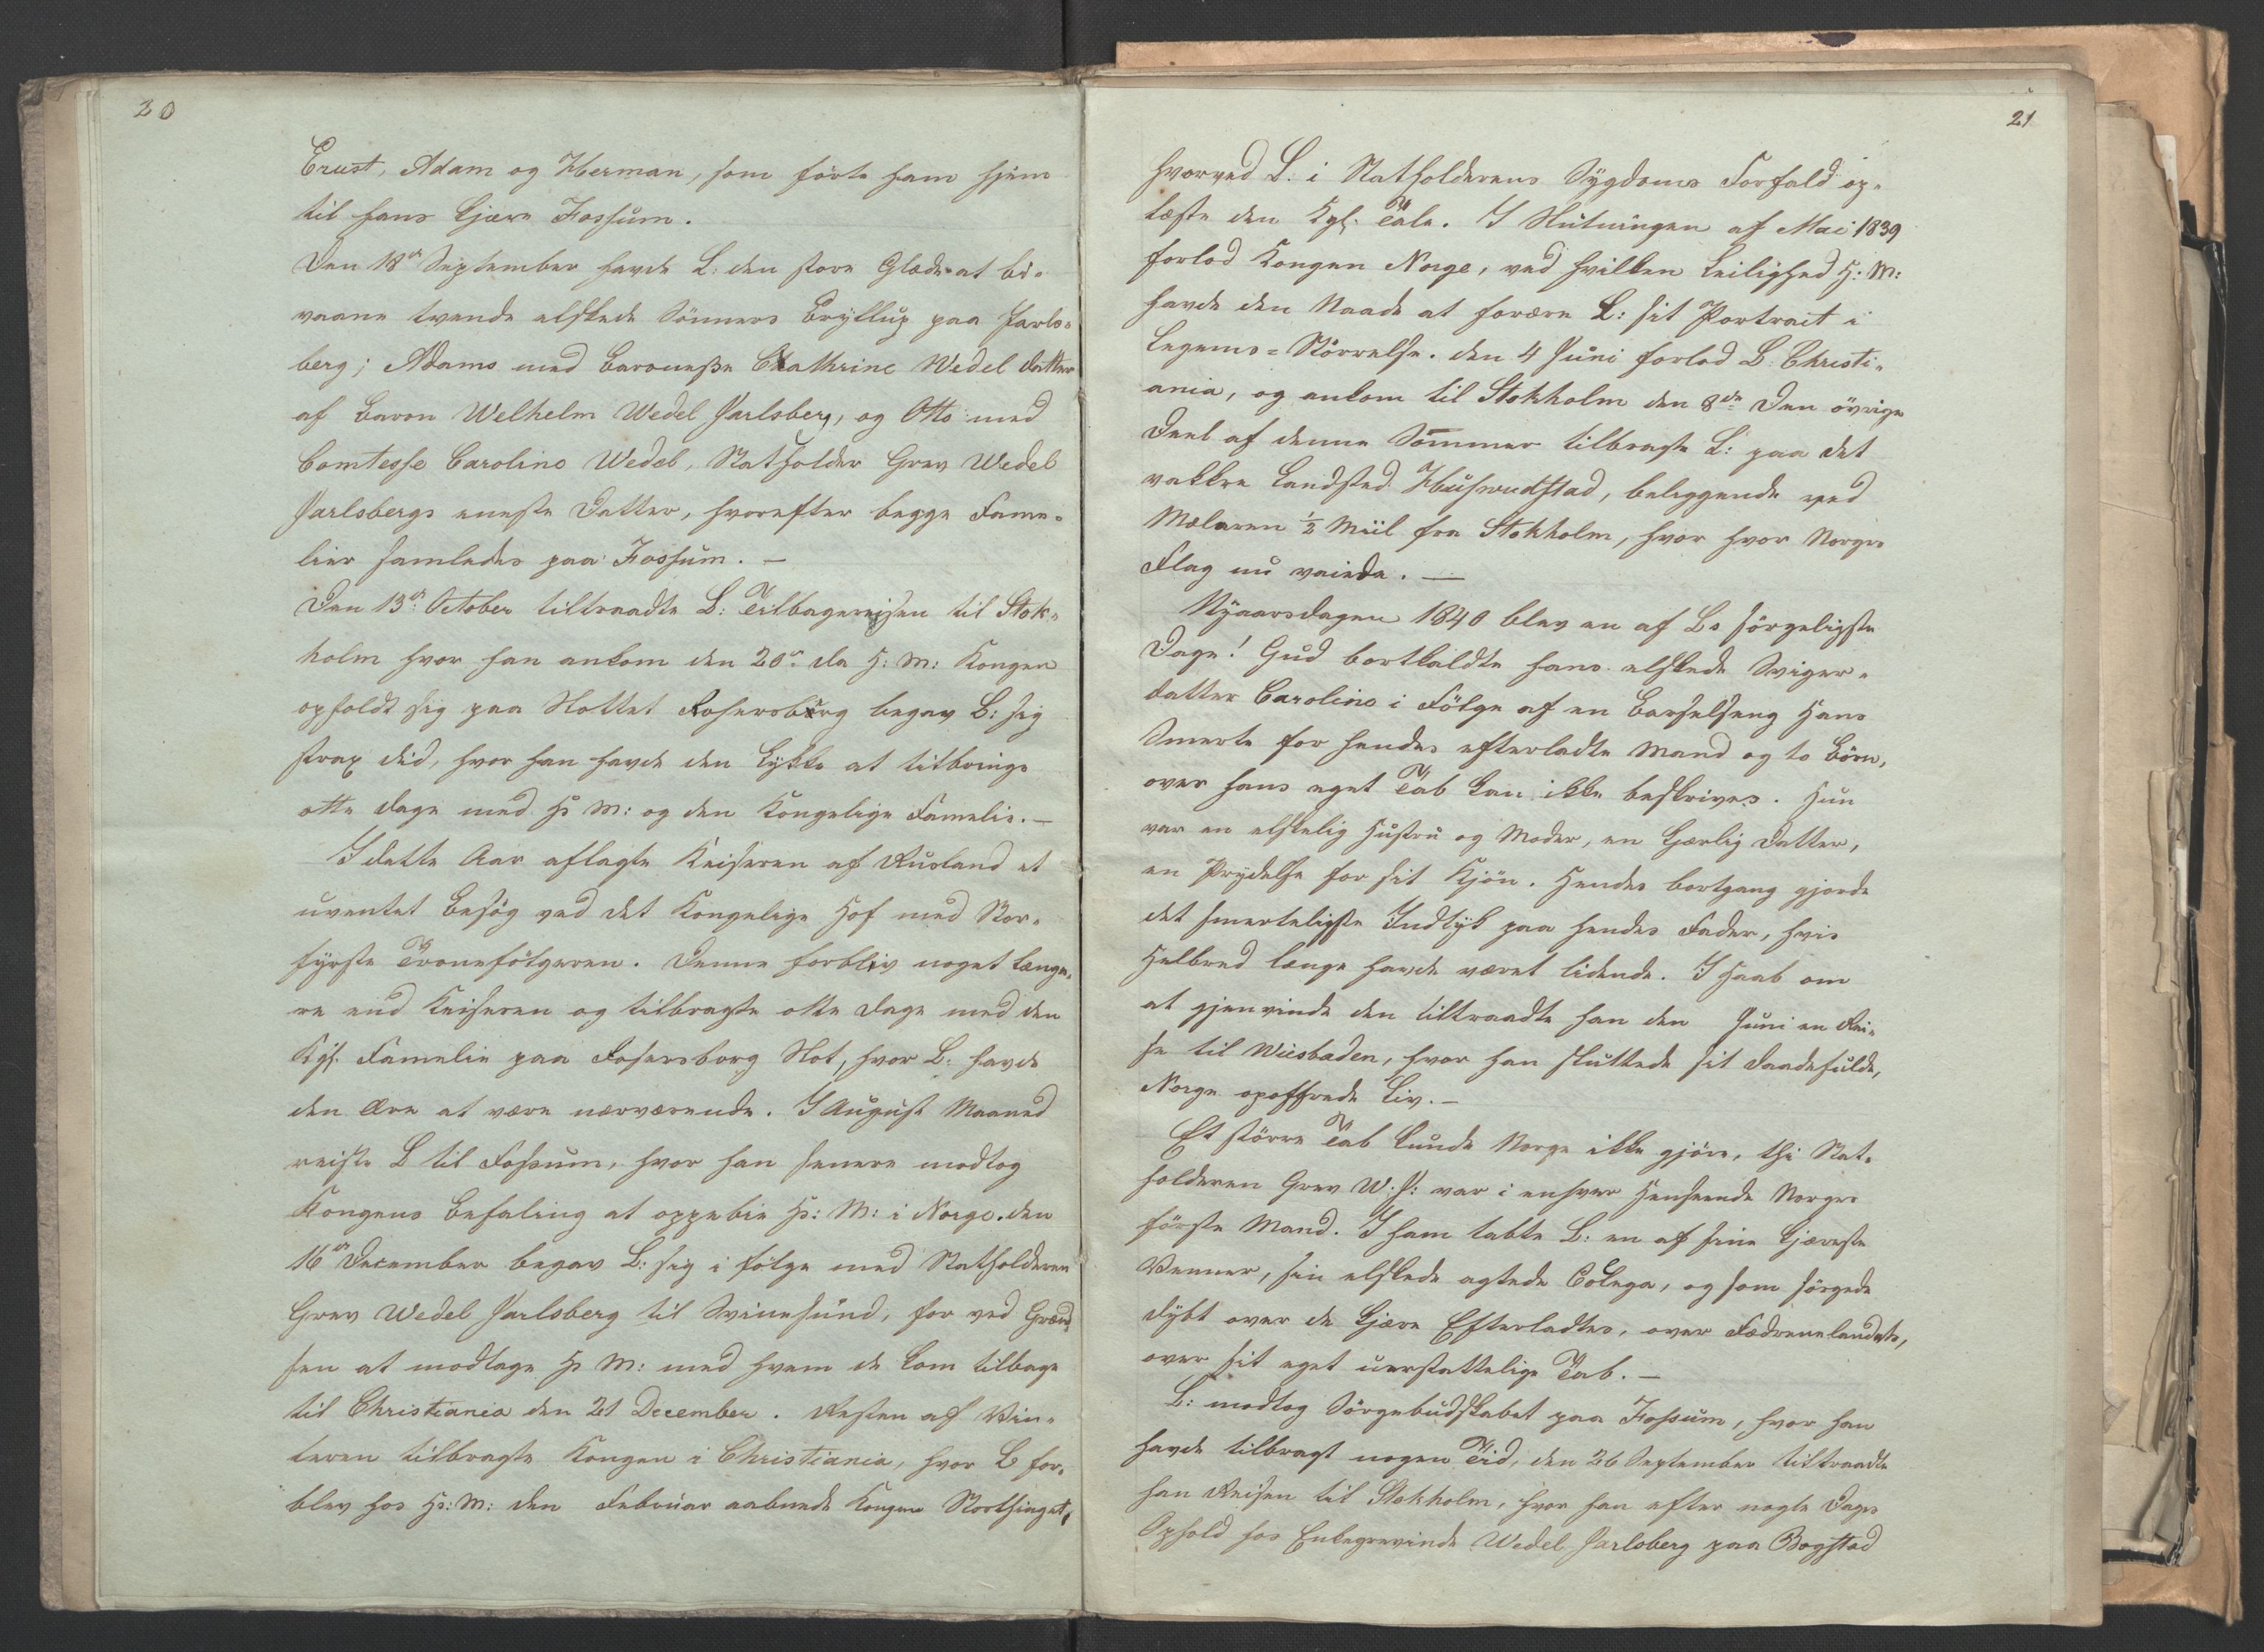 20
Ernst, Adam og Herman, som förte ham hjem
til hans kjære Fossum.
Den 18de September havde L: den store Glæde at bi-
vaane tvende elskede Sönners Bryllup paa Jarls-
berg; Adams med Baronesse Cathrine Wedel Datter
af Baron Welhelm Wedel Jarlsberg, og Otto med
Comtesse Caroline Wedel, Statholder Grev Wedel
Jarlsbergs eneste Datter, hvorefter begge Fame-
lier samledes paa Fossum. –
Den 13de October tiltraadte L: Tilbagereisen til Stok-
holm hvor han ankom den 20de da H: M: Kongen
opholdt sig paa Slottet Rosersborg begav L: sig
strax did, hvor han havde den Lykke at tilbringe
otte Dage med Hs M: og den Kongelige Famelie. –
I dette Aar aflagte Keiseren af Rusland et
uventet Besög ved det Kongelige Hof med Stor-
fyrste Tronefölgeren. Denne forbliv noget længe-
re end Keiseren og tilbragte otte Dage med den
Kgl. Famelie paa Rosersborg Slot, hvor L: havde
den Ære at være nærværende. I August Maaned
reiste L til Fossum, hvor han senere modtog
Kongens Befaling at oppebie Hs: M: i Norge. den
16de December begav L: sig i fölge med Statholderen
Grev Wedel Jarlsberg til Svinesund, for ved Grænd-
sen at modtage Hs M: med hvem de kom tilbage
til Christiania den 21 December. Resten af Vin-
teren tilbragte Kongen i Christiania, hvor L for-
blev hos Hs: M: den Februar aabnede Kongen Storthinget,
21
hvorved L: i Statholderens Sygdoms Forfald op-
læste den Kgl. Tale. I Slutningen af Mai 1839
forlod Kongen Norge, ved hvilken Leilighed H: M:
havde den Naade at forære L: sit Portrait i
Legems-Störrelse. den 4 Juni forlod L. Christi-
ania, og ankom til Stokholm den 8de Den övrige
Deel af denne Sommer tilbragte L: paa det
vakkre Landsted Husvudstad, beliggende ved
Mælaren ½ Miil fra Stokholm, hvor hvor Norges
Flag nu vaiede. –
Nyaarsdagen 1840 blev en af Ls sörgeligste
Dage! Gud bortkaldte hans elskede Sviger-
datter Caroline i Fölge af en Barselseng Hans
Smerte for hendes efterladte Mand og to Börn,
over hans eget Tab kan ikke beskrives. Hun
var en elskelig Hustru og Moder, en kjærlig Datter,
en Prydelse for sit Kjön. Hendes bortgang gjorde
det smerteligste Indtyk paa hendes Fader, hvis
Helbred længe havde været lidende. I Haab om
at gjenvinde den tiltraadte han den Juni en Rei-
se til Wiesbaden, hvor han sluttede sit daadefulde,
Norge opoffrede Liv. –
Et större Tab kunde Norge ikke gjöre, thi Stat-
holderen Grev W. J: var i enhver Henseende Norges
förste Mand. I ham tabte L: en af sine kjæreste
Venner, sin elskede agtede Colega, og som sörgede
dybt over de kjære Efterladtes, over Fædrenelandets,
over sit eget uerstattelige Tab. –
L: modtog Sörgebudskabet paa Fossum, hvor han
havde tilbragt nogen Tid, den 26 September tiltraadte
han Reisen til Stokholm, hvor han efter nogle Dages
Ophold hos Enkegrevinde Wedel Jarlsberg paa Bogstad